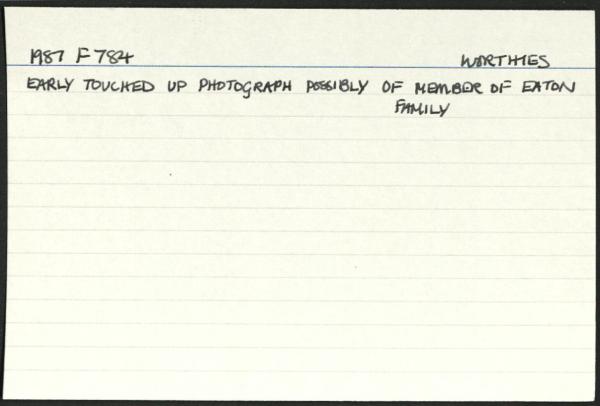 1987 F 784 WORTHIES
EARLY TOUCHED UP PHOTOGRAPH POSSIBLY OF MEMBER OF EATON
FAMILY